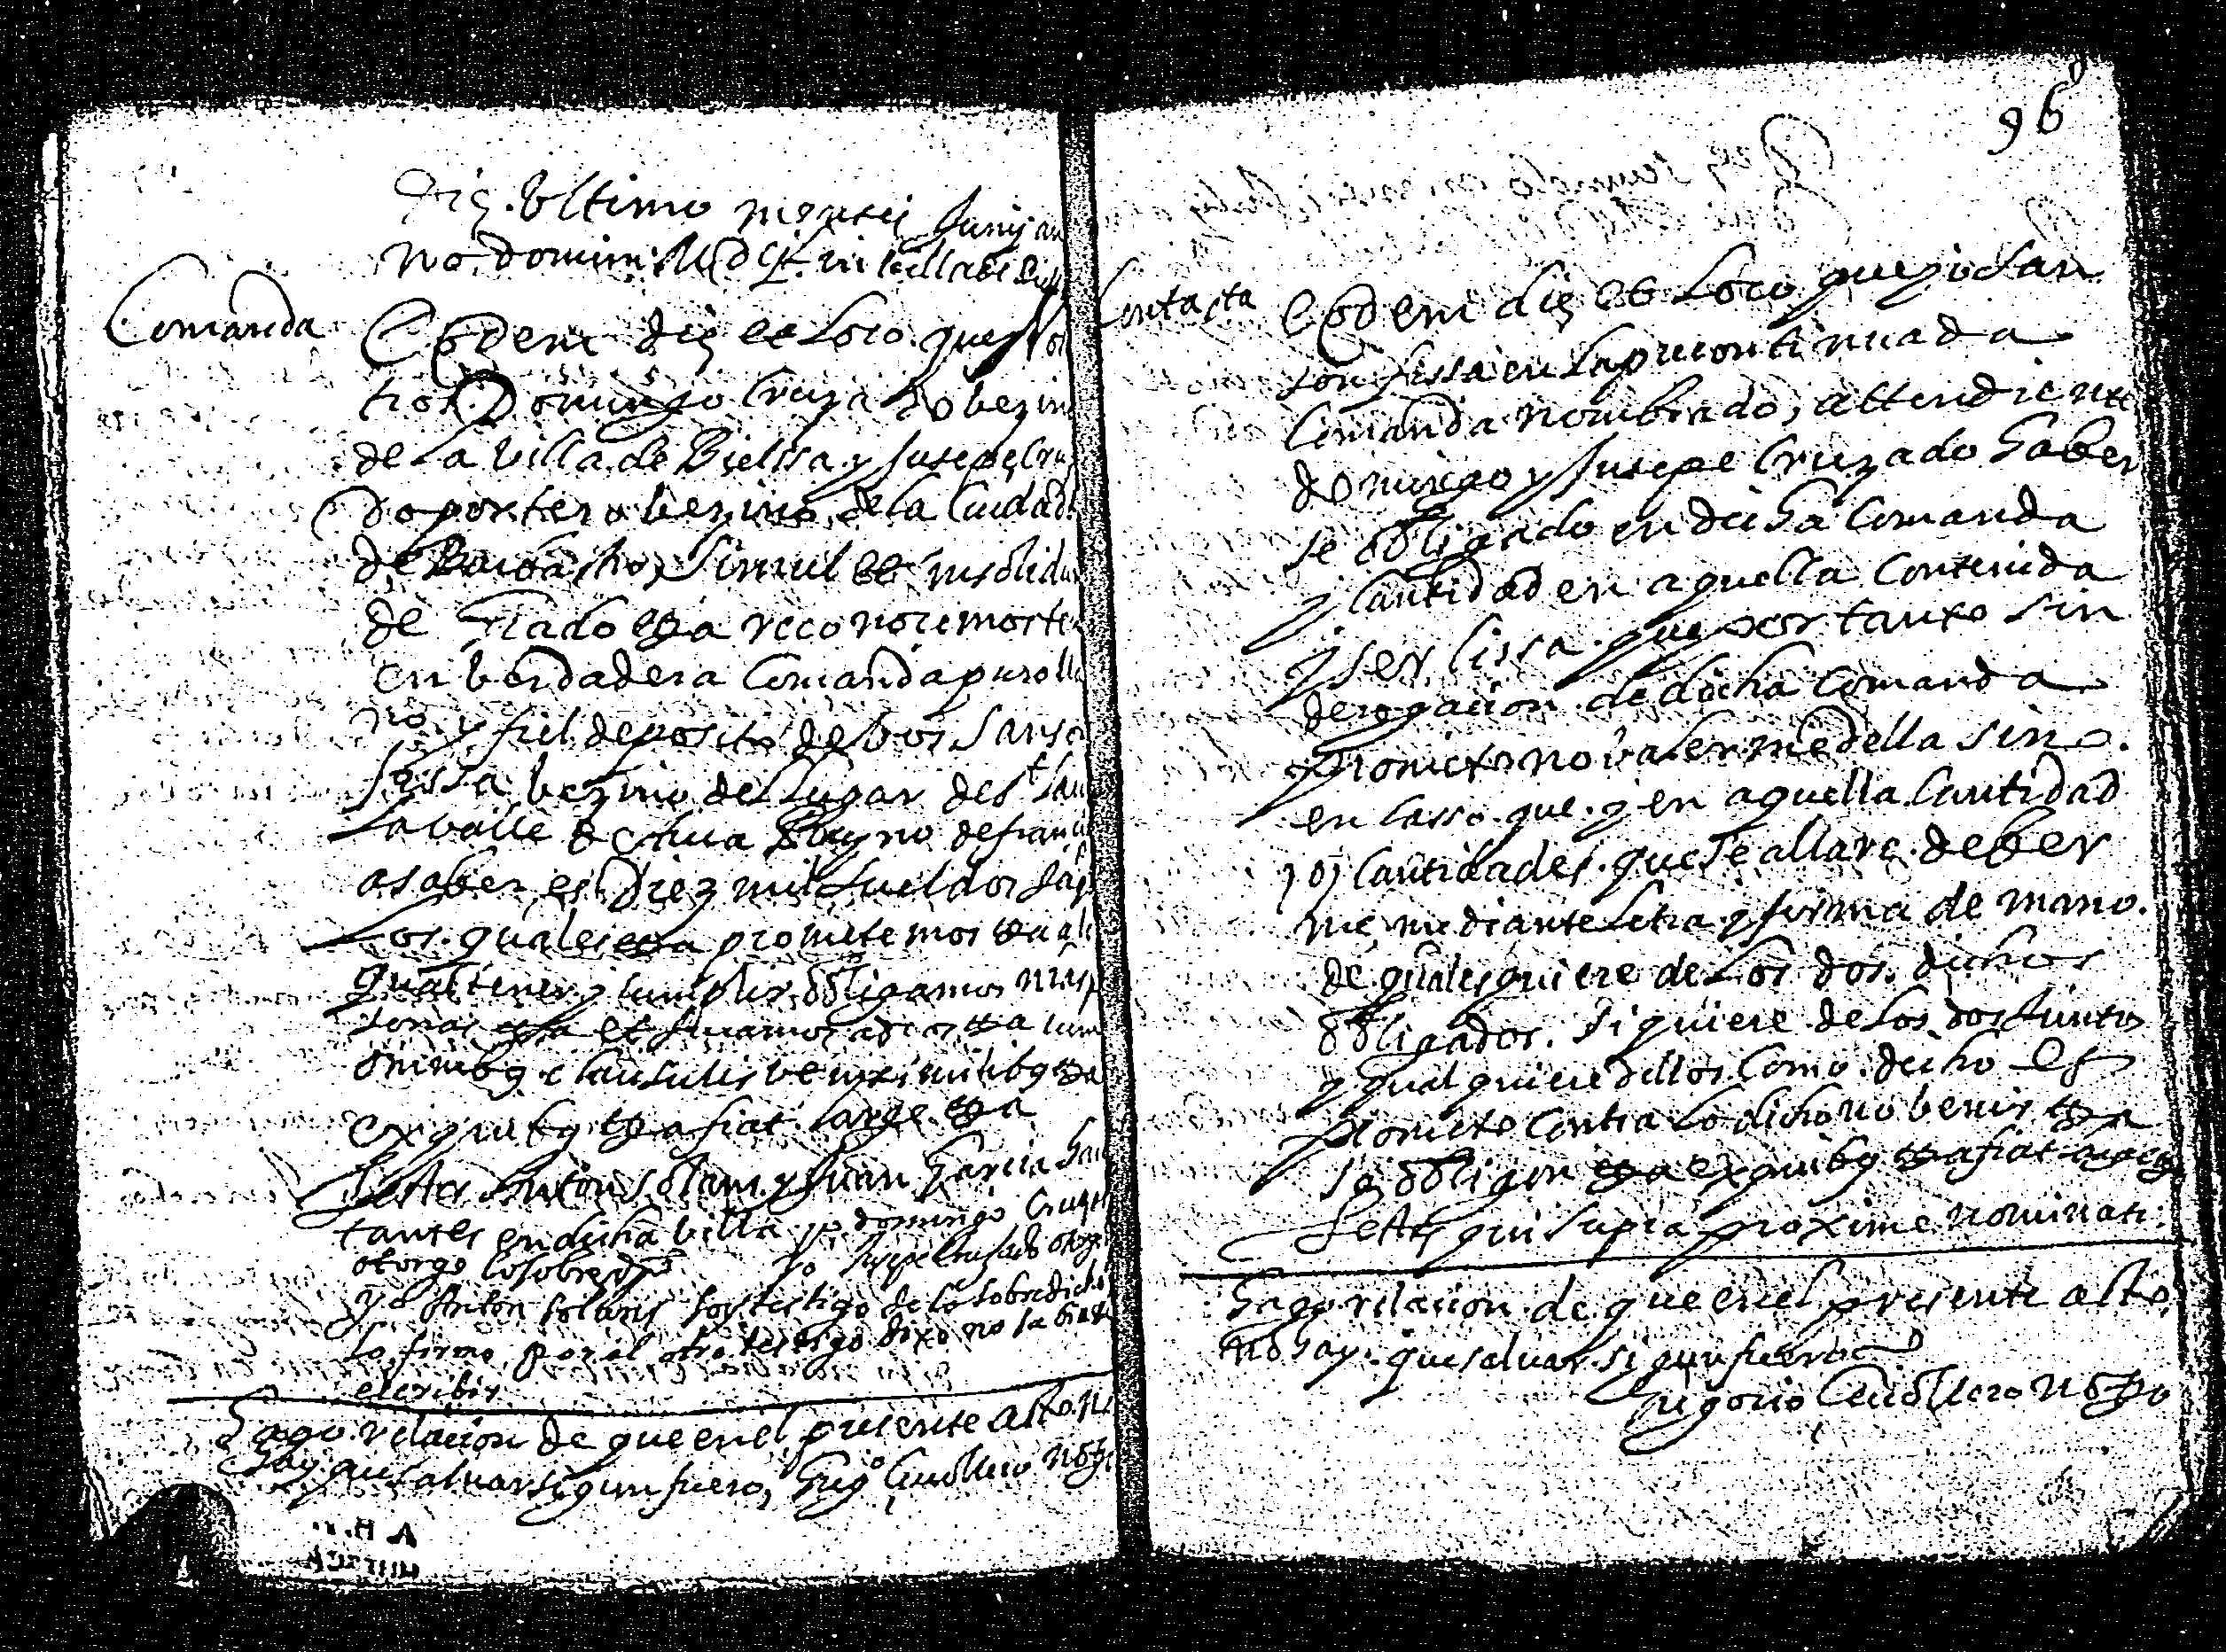 Die Ultimo mensis Junij an
no domini MDCL in Villa de Biel
Comanda
Eodem die et loco que nos
tros Domingo Cruzado bezino
de la billa de Bielssa y Jusepe Cru
do portero bezino de la Ciudad
de Barbastro, Simul et insolidum
de Grado etta reconocemos te
en berdadera Comanda puro lla
no y fiel deposito de bos Sanso
fessa bezino del lugar de St
la balle Reyno de franci
a saber es Diez mil sueldos Jaq
Los quales etta prometemos etta a
qual tener y cumplir obligamos nras p
sonas etta et Juramos a dios etta cum
omnibus clausulis etta
ex quibus etta fiat large etta
Testes Anton Solans y Juan Garcia hau
tantes en dicha billa yo domingo Cruza
otorgo lo sobredho yo Jusepe Cruzado otorg
yo Anton Solans soy testigo de lo sobredicho
lo firmo por el otro testigo dixo no sabia
escribir
Hago relacion de que en el presente acto no
hay que salvar segun fuero, Greg° not
96
Contracta
Eodem die et loco que yo San
son fessa en la precontinuada
Comanda nombrado, attendiente
domingo y Jusepe Cruzado haber
se obligado en dicha Comanda
y Cantidad en aquella Contenida
y ser que por tanto sin
derogacion de dicha Comanda
prometo no balerme della sino
en casso que y en aquella Cantidad
y o cantidades que se allare deber
me mediante letra y firma de mano
de qualesquiere de los dos dichos
obligados. Siquiere de los dos Juntos
y qualquiere dellos Como dicho es
prometo Contra lo dicho no benir etta
so obligon etta ex quibus etta fiat large
Testes qui supra proxime nominati
Hago relacion de que en el presente acto
no hay que salvar segun fuero
Gregorio not
A.H.P.
HUESCA